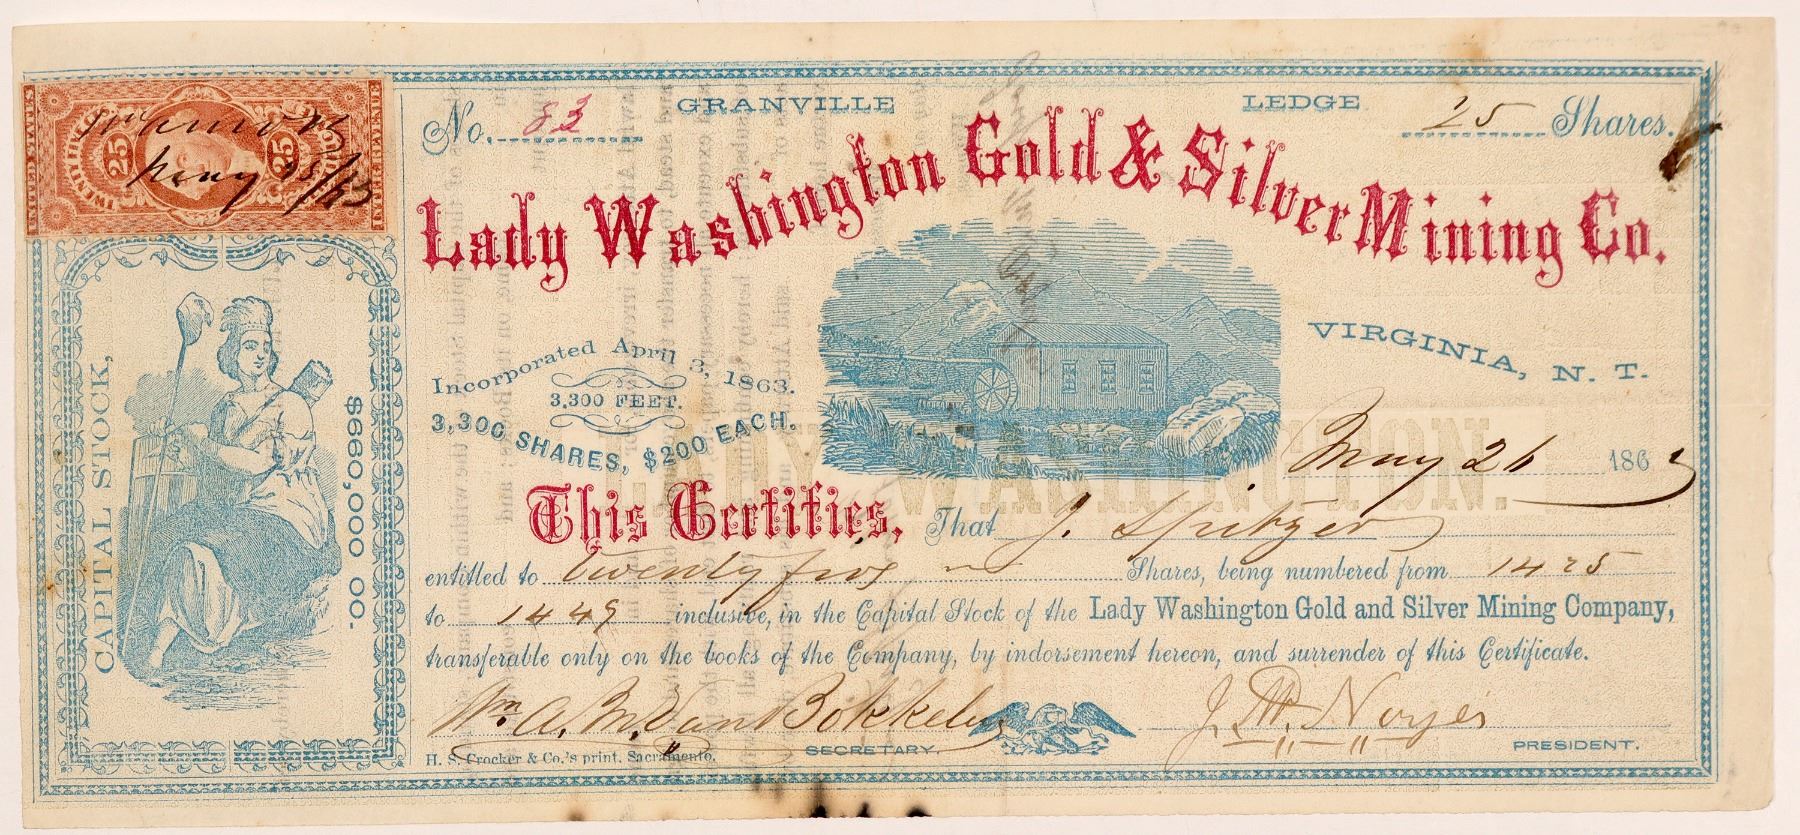 UNITED STATES
INTER. REVENUE
25 25
May 25/63
No. 83 GRANVILLE LEDGE 25 Shares.
Lady Washington Gold & Silver Mining Co.
VIRGINIA, N. T.
Incorporated April 3, 1863.
3,300 FEET.
3,300 SHARES, $200 EACH.
CAPITAL STOCK,
$660,000 00.
May 26 1863
This Certifies, That J. Spitzer
entitled to twenty five Shares, being numbered from 1425
to 1449 inclusive, in the Capital Stock of the Lady Washington Gold and Silver Mining Company,
transferable only on the books of the Company, by indorsement hereon, and surrender of this Certificate.
Wm. A. M. Van Bokkelen SECRETARY.
J. W. Noyes PRESIDENT.
H. S. Crocker & Co.'s print. Sacramento.